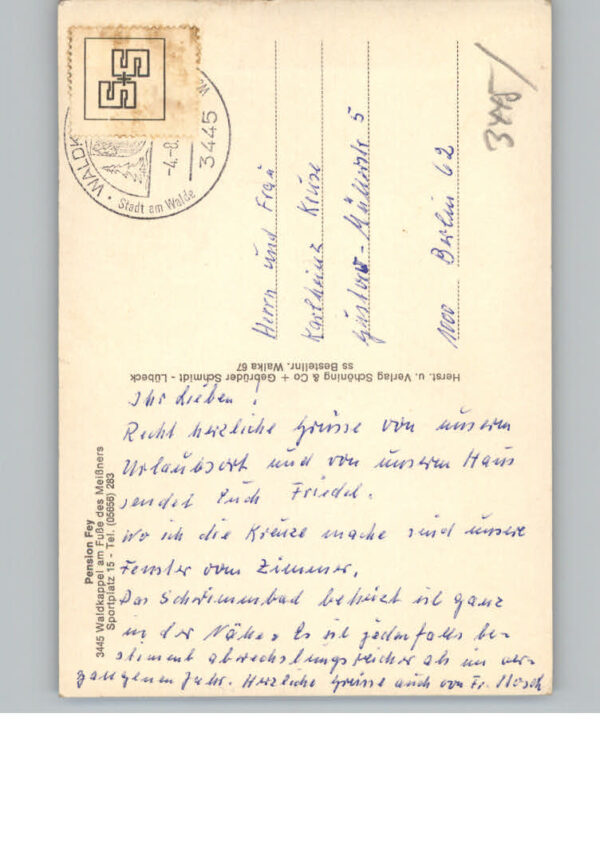 3445
WALDK
-4.-8.
3445
Stadt am Walde
Herrn und Frau
Karlheinz Kruse
Gustav-Müllerstr 5
1000 Berlin 62
Herst. u. Verlag Schöning & Co + Gebrüder Schmidt - Lübeck
ss Bestellnr. Walka 67
Pension Fey
3445 Waldkappel am Fuße des Meißners
Sportplatz 15 - Tel. (05656) 283
Ihr Lieben!
Recht herzliche Grüsse von unserm
Urlaubsort und von unserm Haus
sendet Euch Friedel.
Wo ich die Kreuze mache sind unsere
Fenster vom Zimmer.
Das Schwimmbad beheizt ist ganz
in der Nähe. Es ist jedenfalls be-
stimmt abwechslungsreicher als im ver-
gangenen Jahr. Herzliche Grüsse auch von Fr.